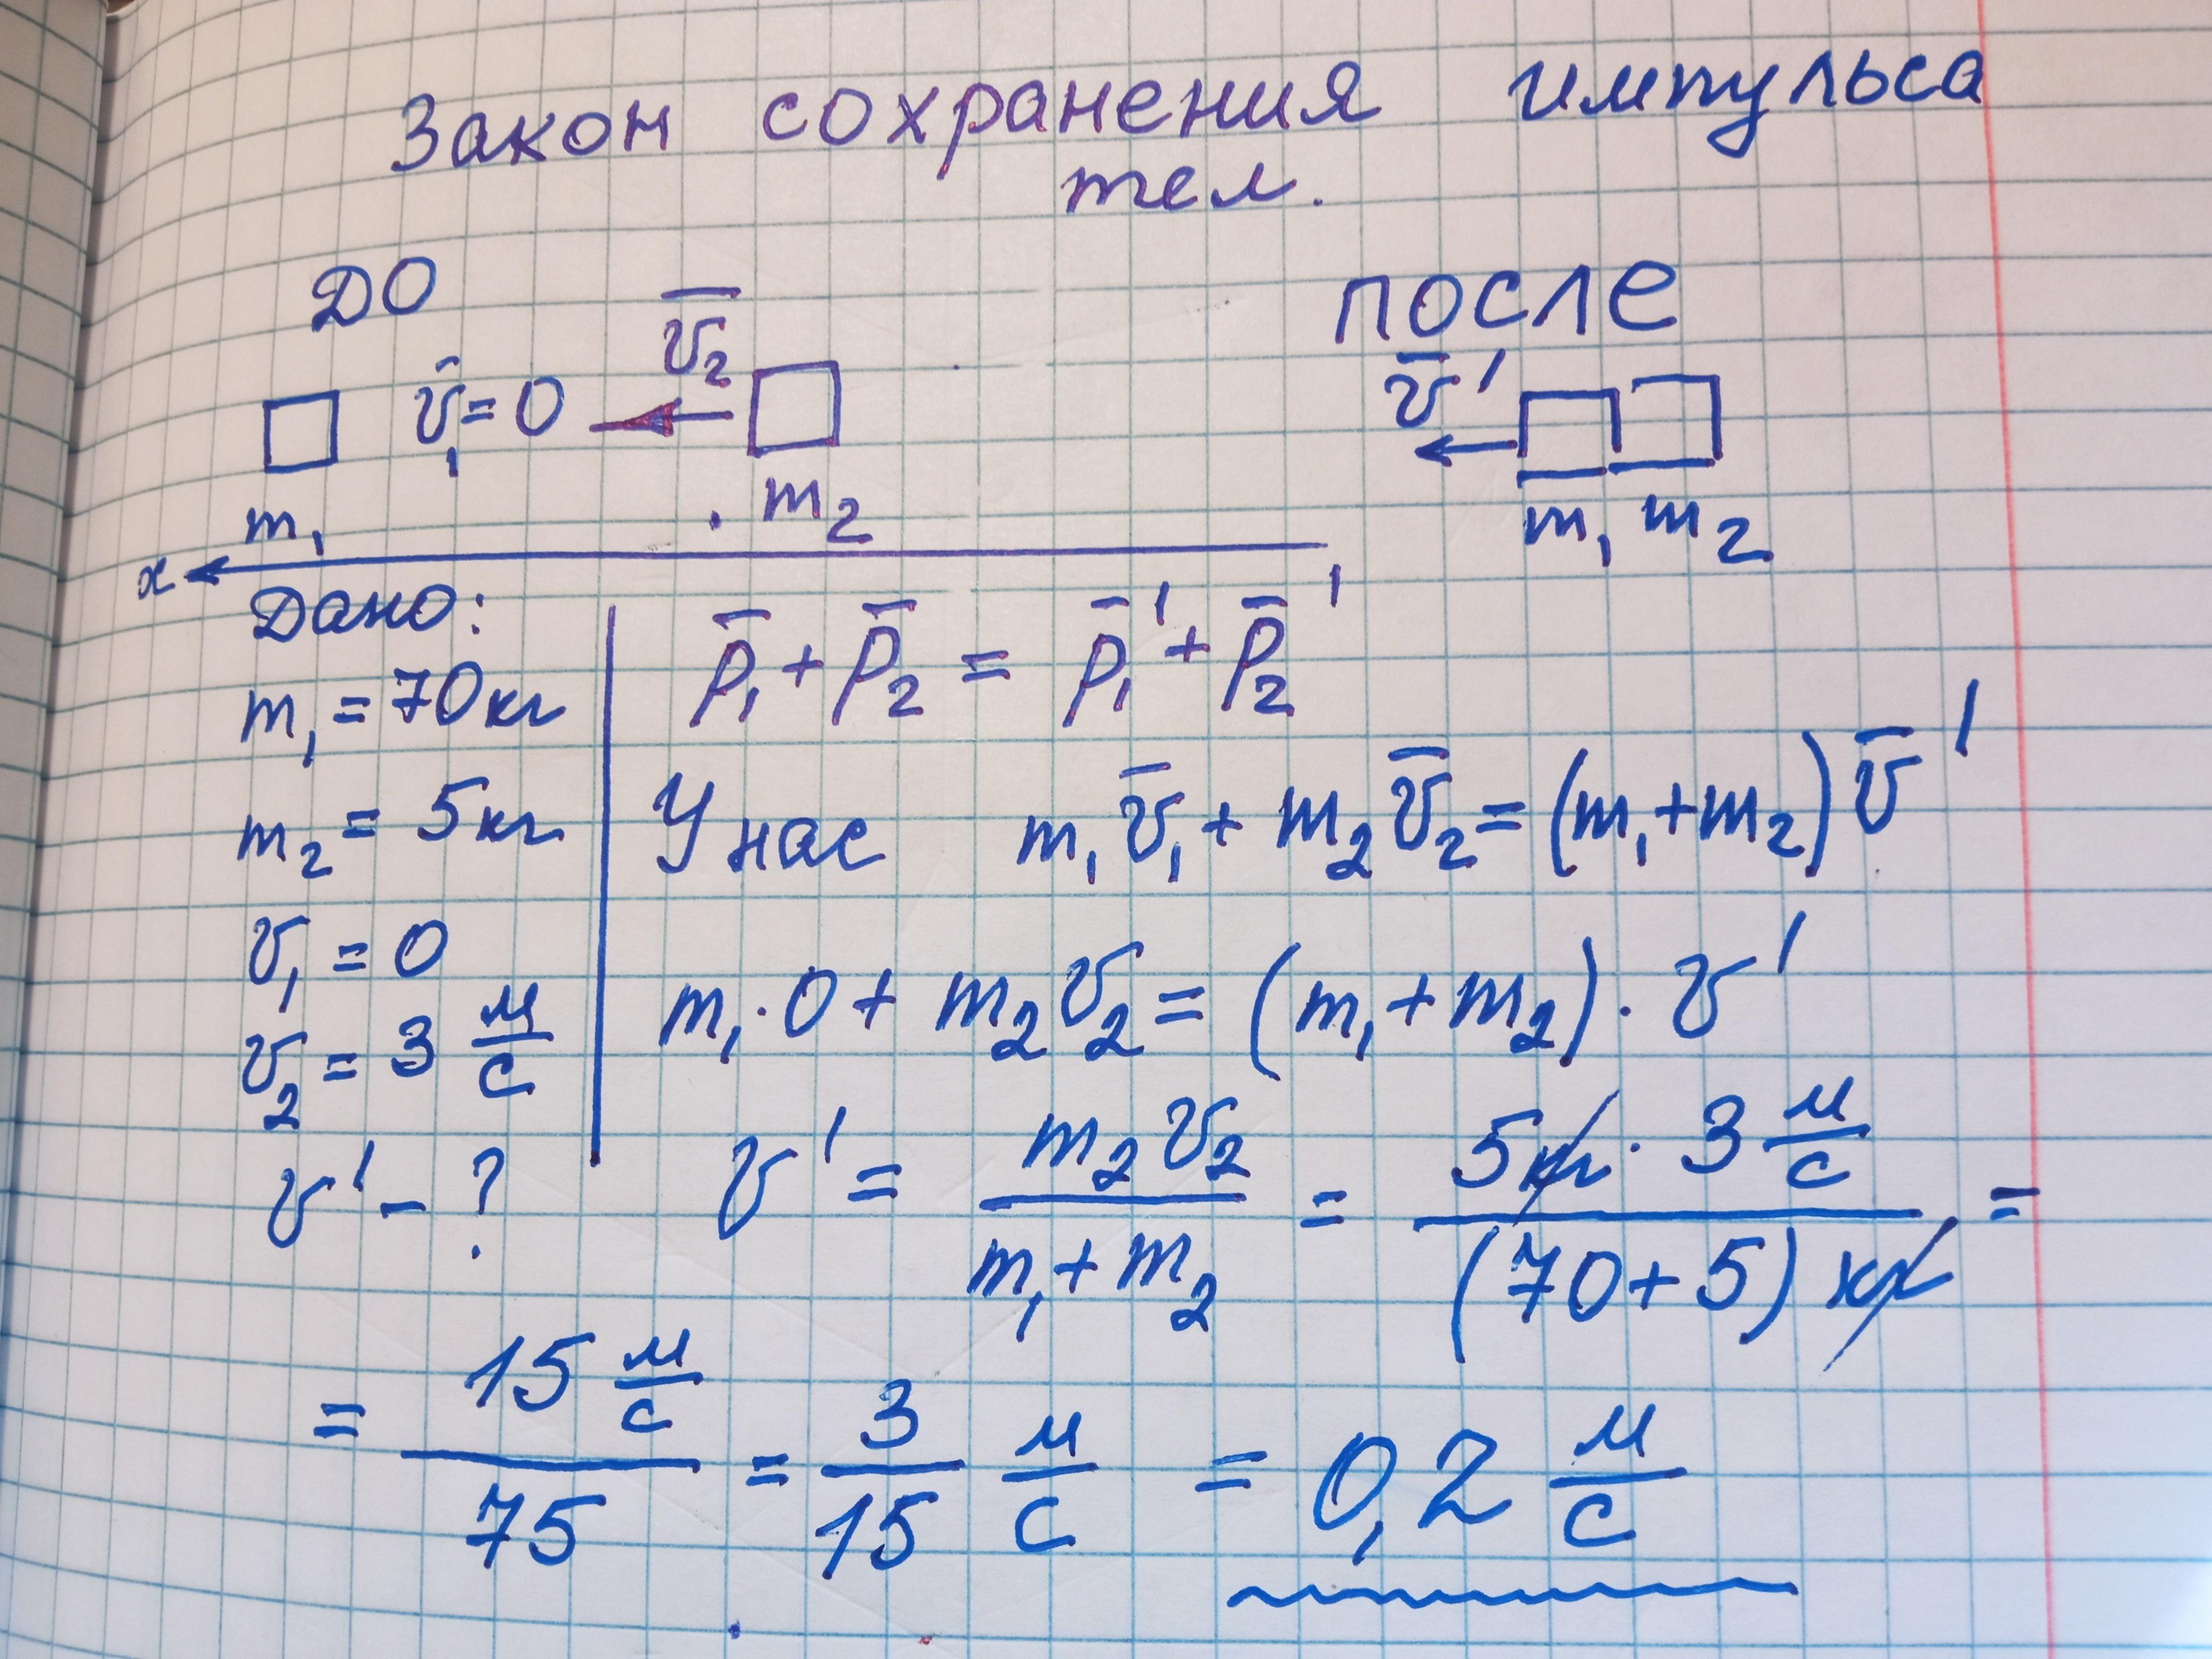 Закон сохранения импульса
тел.
ДО
после
v̄₁=0
v̄₂
v̄'
m₁
m₂
m₁ m₂
x
Дано:
m₁ = 70кг
m₂ = 5кг
v₁ = 0
v₂ = 3 м/с
v' - ?
p̄₁ + p̄₂ = p̄₁' + p̄₂'
У нас m₁v̄₁ + m₂v̄₂ = (m₁+m₂)v̄'
m₁·0 + m₂v₂ = (m₁+m₂)·v'
v' = m₂v₂/(m₁+m₂) = 5кг·3 м/с / (70+5)кг =
= 15 м/с / 75 = 3/15 м/с = 0,2 м/с